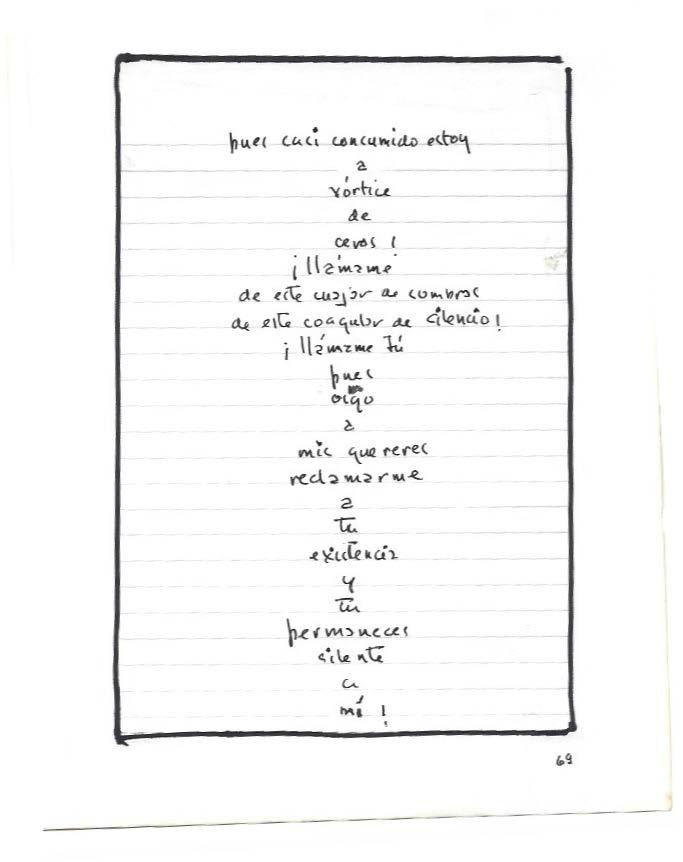 pues casi consumido estoy
a
vórtice
de
ceros !
¡ llámame
de este cuajar de sombras
de este coagular de silencio !
¡ llámame tú
pues
oigo
a
mis quereres
reclamarme
a
tu
existencia
y
tú
permaneces
silente
a
mí !
69